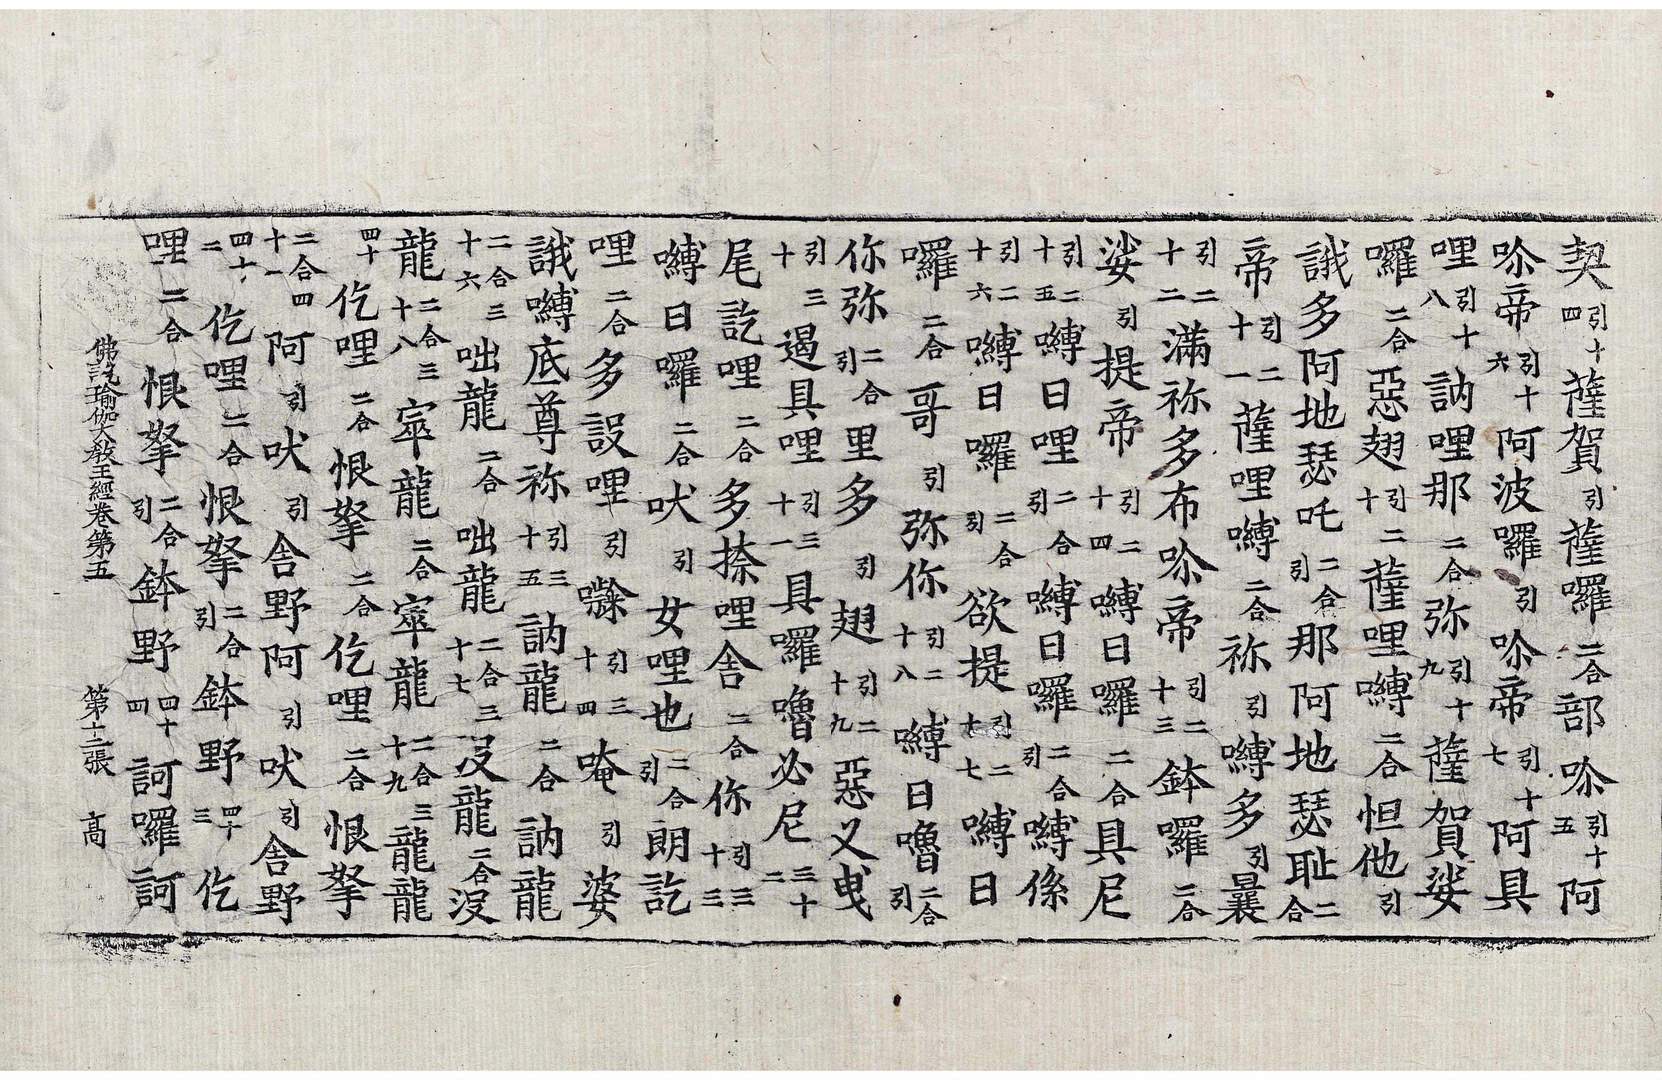 契引十四薩賀引薩囉二合部吩引十五阿
吩帝引十六阿波囉引吩帝引十七阿具
哩引十八訥哩那二合弥引十九薩賀娑
囉二合惡翅引二十薩哩嚩二合怛他引
誐多阿地瑟吒二合引那阿地瑟耻二合
帝引二十一薩哩嚩二合祢引嚩多引曩
引二十二滿祢多布吩帝引二十三鉢囉二合
娑引提帝引二十四嚩日囉二合具尼
引二十五嚩日哩二合引嚩日囉二合引嚩係
引二十六嚩日囉二合引欲提引二十七嚩日
囉二合哥引弥你引二十八嚩日嚕二合引
你弥二合引里多引翅引二十九惡叉曵
引三十遏具哩引三十一具囉嚕必尼三十二
尾訖哩二合多捺哩舍二合你引三十三
嚩日囉二合吠引女哩也二合引朗訖
哩二合多設哩引囕引三十四唵引婆
誐嚩底尊祢引三十五訥龍二合訥龍
二合三十六咄龍二合咄龍二合三十七沒龍二合沒
龍二合三十八寧龍二合寧龍二合三十九龍龍
四十仡哩二合恨拏二合仡哩二合恨拏
二合四十一阿引吠引舍野阿引吠引舍野
四十二仡哩二合恨拏二合引鉢野四十三仡
哩二合恨拏二合引鉢野四十四訶囉訶
佛說瑜伽大教王經卷第五 第十二張 高